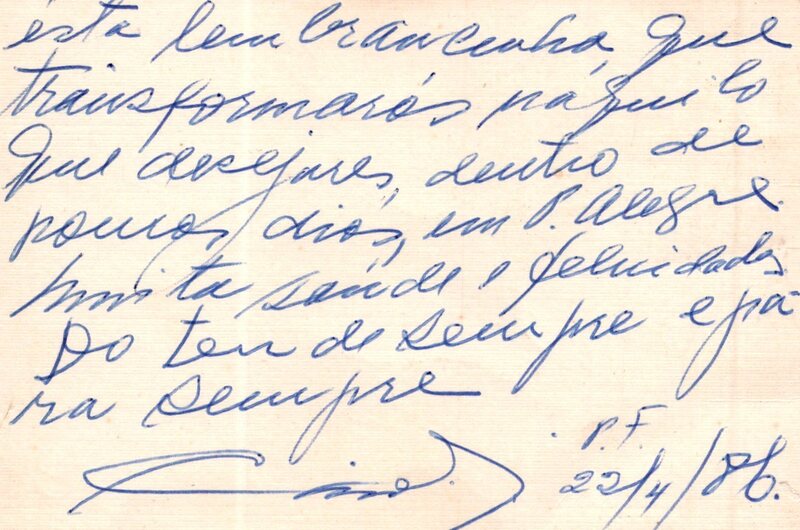 esta lembrancinha, que
transformarás náquilo
que desejares, dentro de
poucos dias, em P. Alegre.
Muita saúde e felicidades
Do teu de sempre e pa-
ra sempre
P.F.
22/4/86.